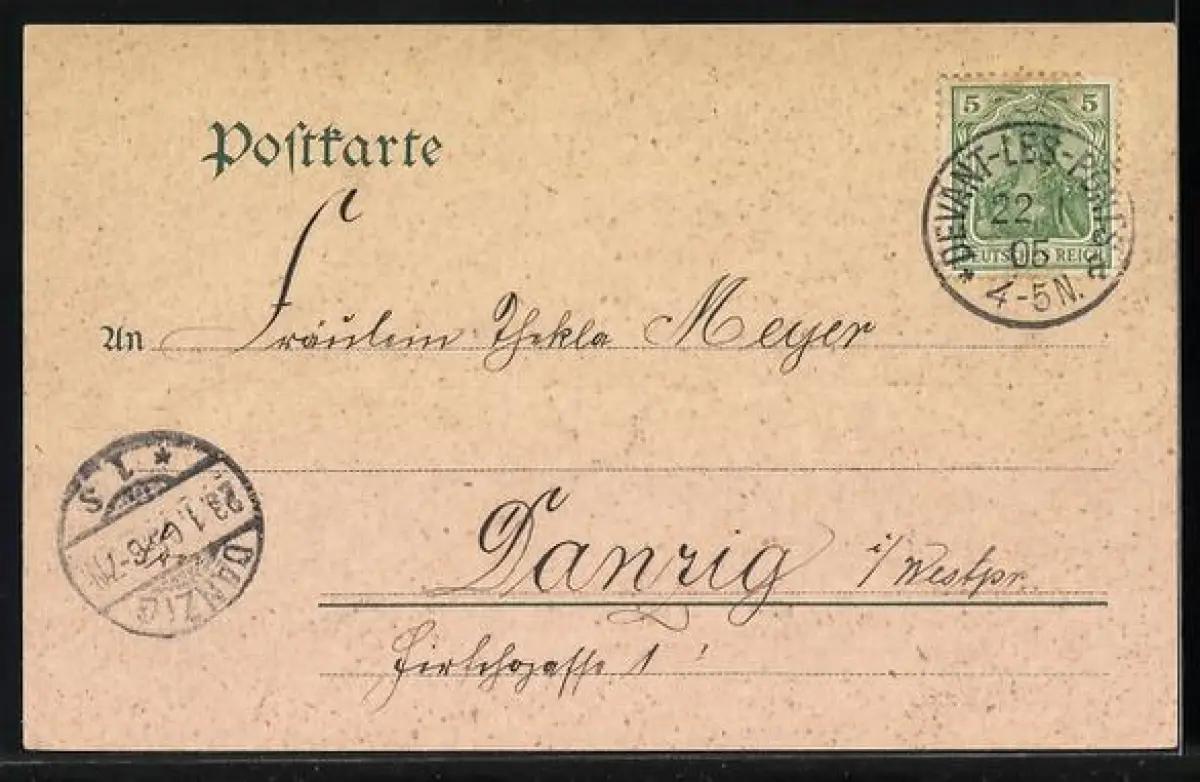 5 5
Postkarte
DEVANT-LES-PONTS
22
05
4-5N.
DEUTSCHES REICH
An Fräulein Thekla Meyer
DANZIG
23.1.
6-7N
Danzig i/Westpr.
1